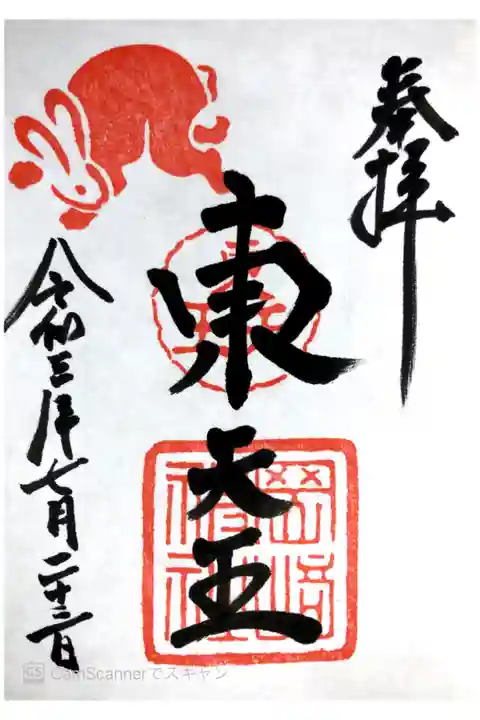 奉拝
東天王
令和三年七月二十三日
岡﨑神社
CamScannerでスキャン